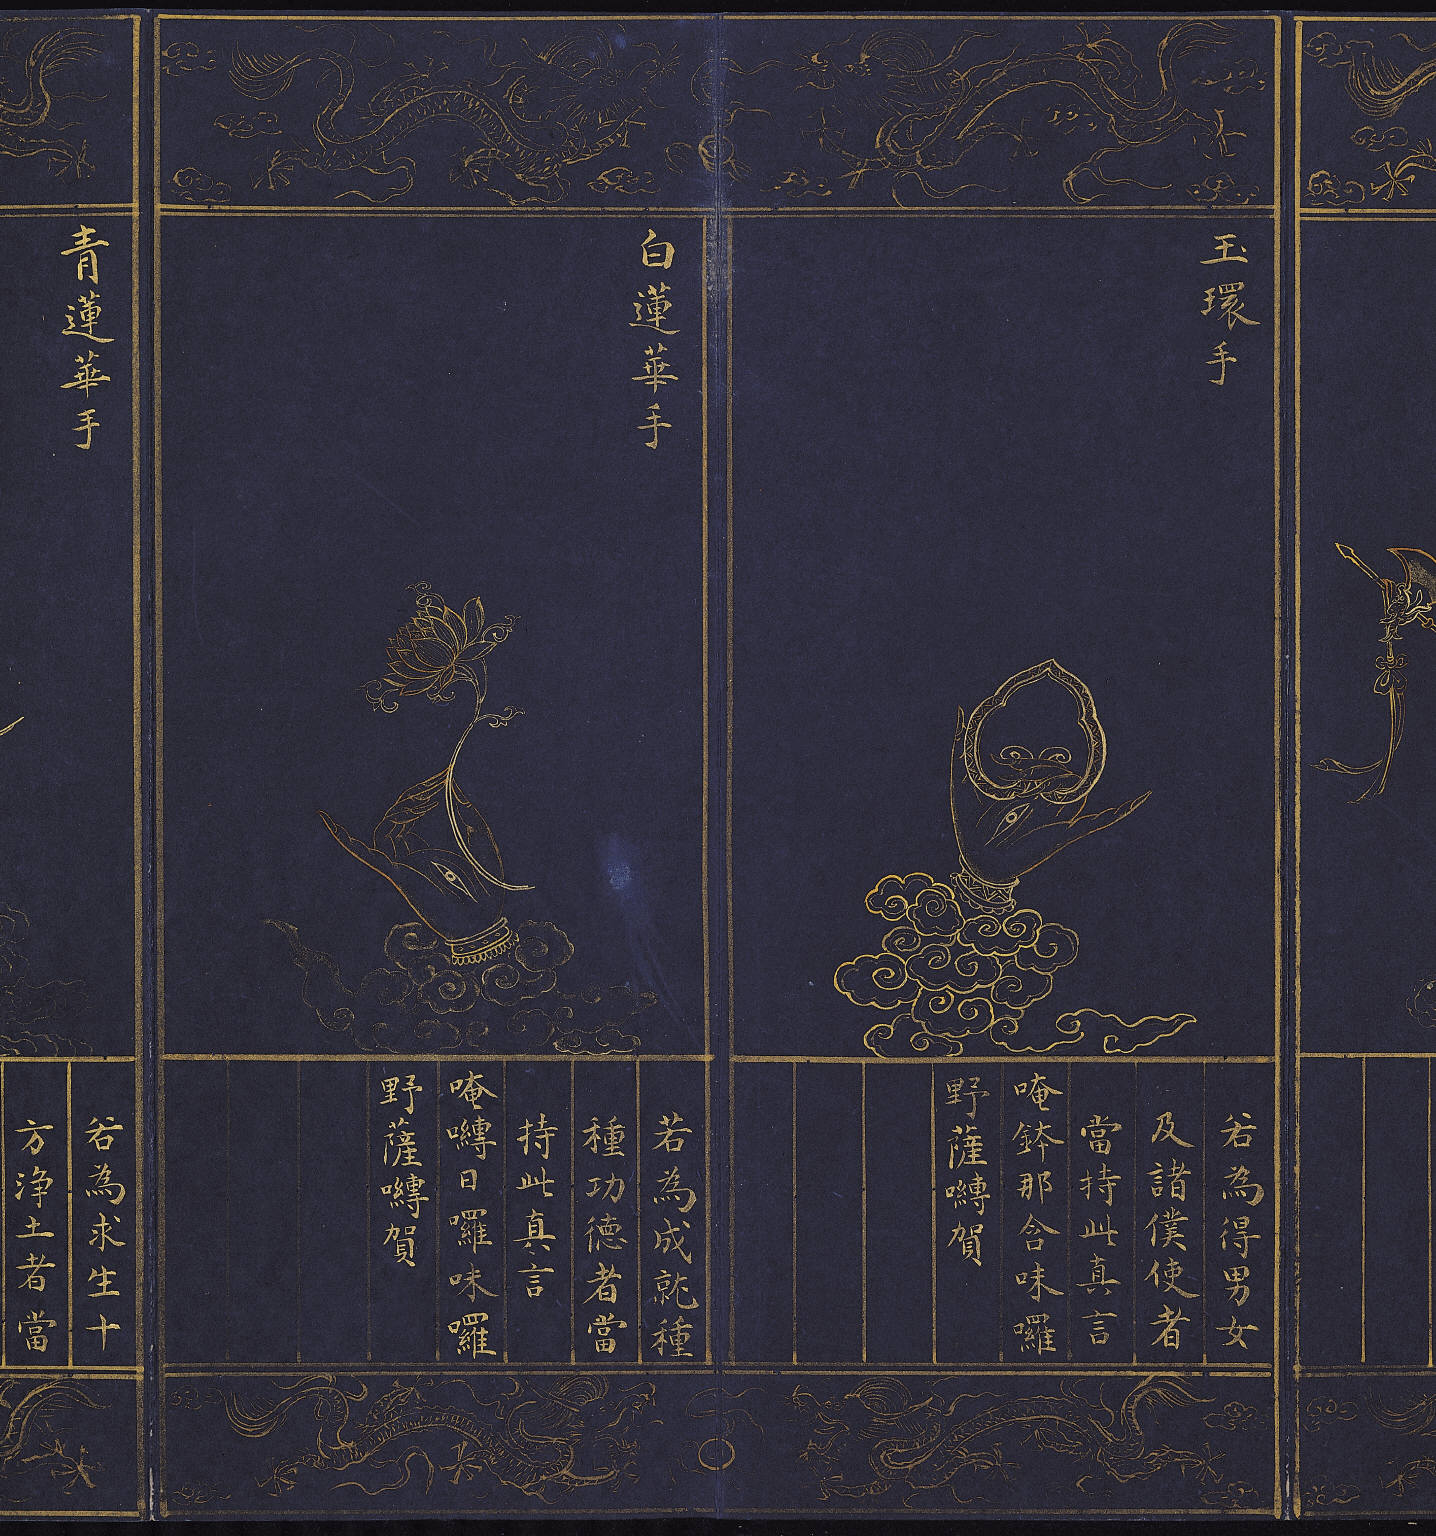 玉環手
若為得男女
及諸僕使者
當持此真言
唵鉢那𤙖味囉
野薩嚩賀
白蓮華手
若為成就種
種功德者當
持此真言
唵嚩日囉味囉
野薩嚩賀
青蓮華手
若為求生十
方淨土者當